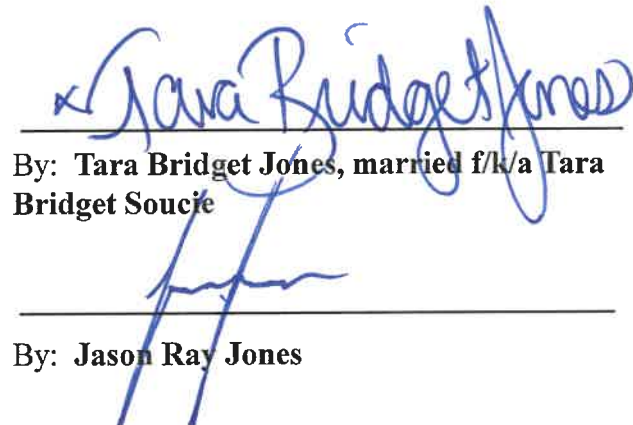 x Tara Bridget Jones
By: Tara Bridget Jones, married f/k/a Tara
Bridget Soucie
By: Jason Ray Jones